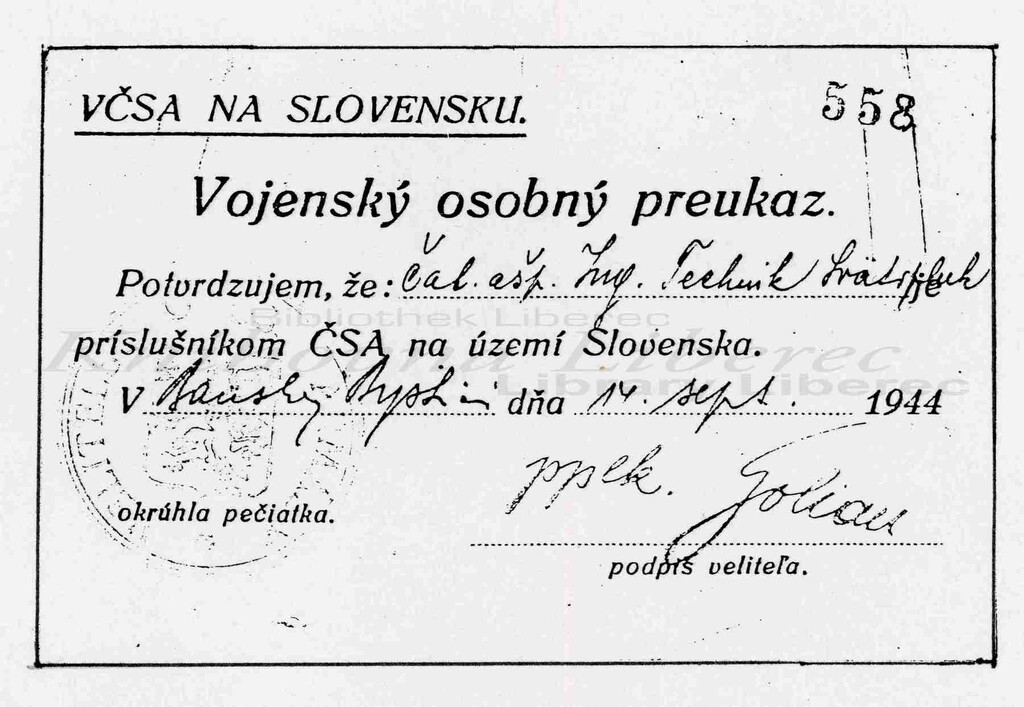 VČSA NA SLOVENSKU.
558
Vojenský osobný preukaz.
Potvrdzujem, že: čat. ašp. Ing. Technik Svätopluk je
Bibliothek Liberec
príslušníkom ČSA na území Slovenska.
Knihovna Liberec
Library Liberec
V Banskej Bystrici dňa 14. sept. 1944
ppplk. Golian
okrúhla pečiatka.
podpis veliteľa.